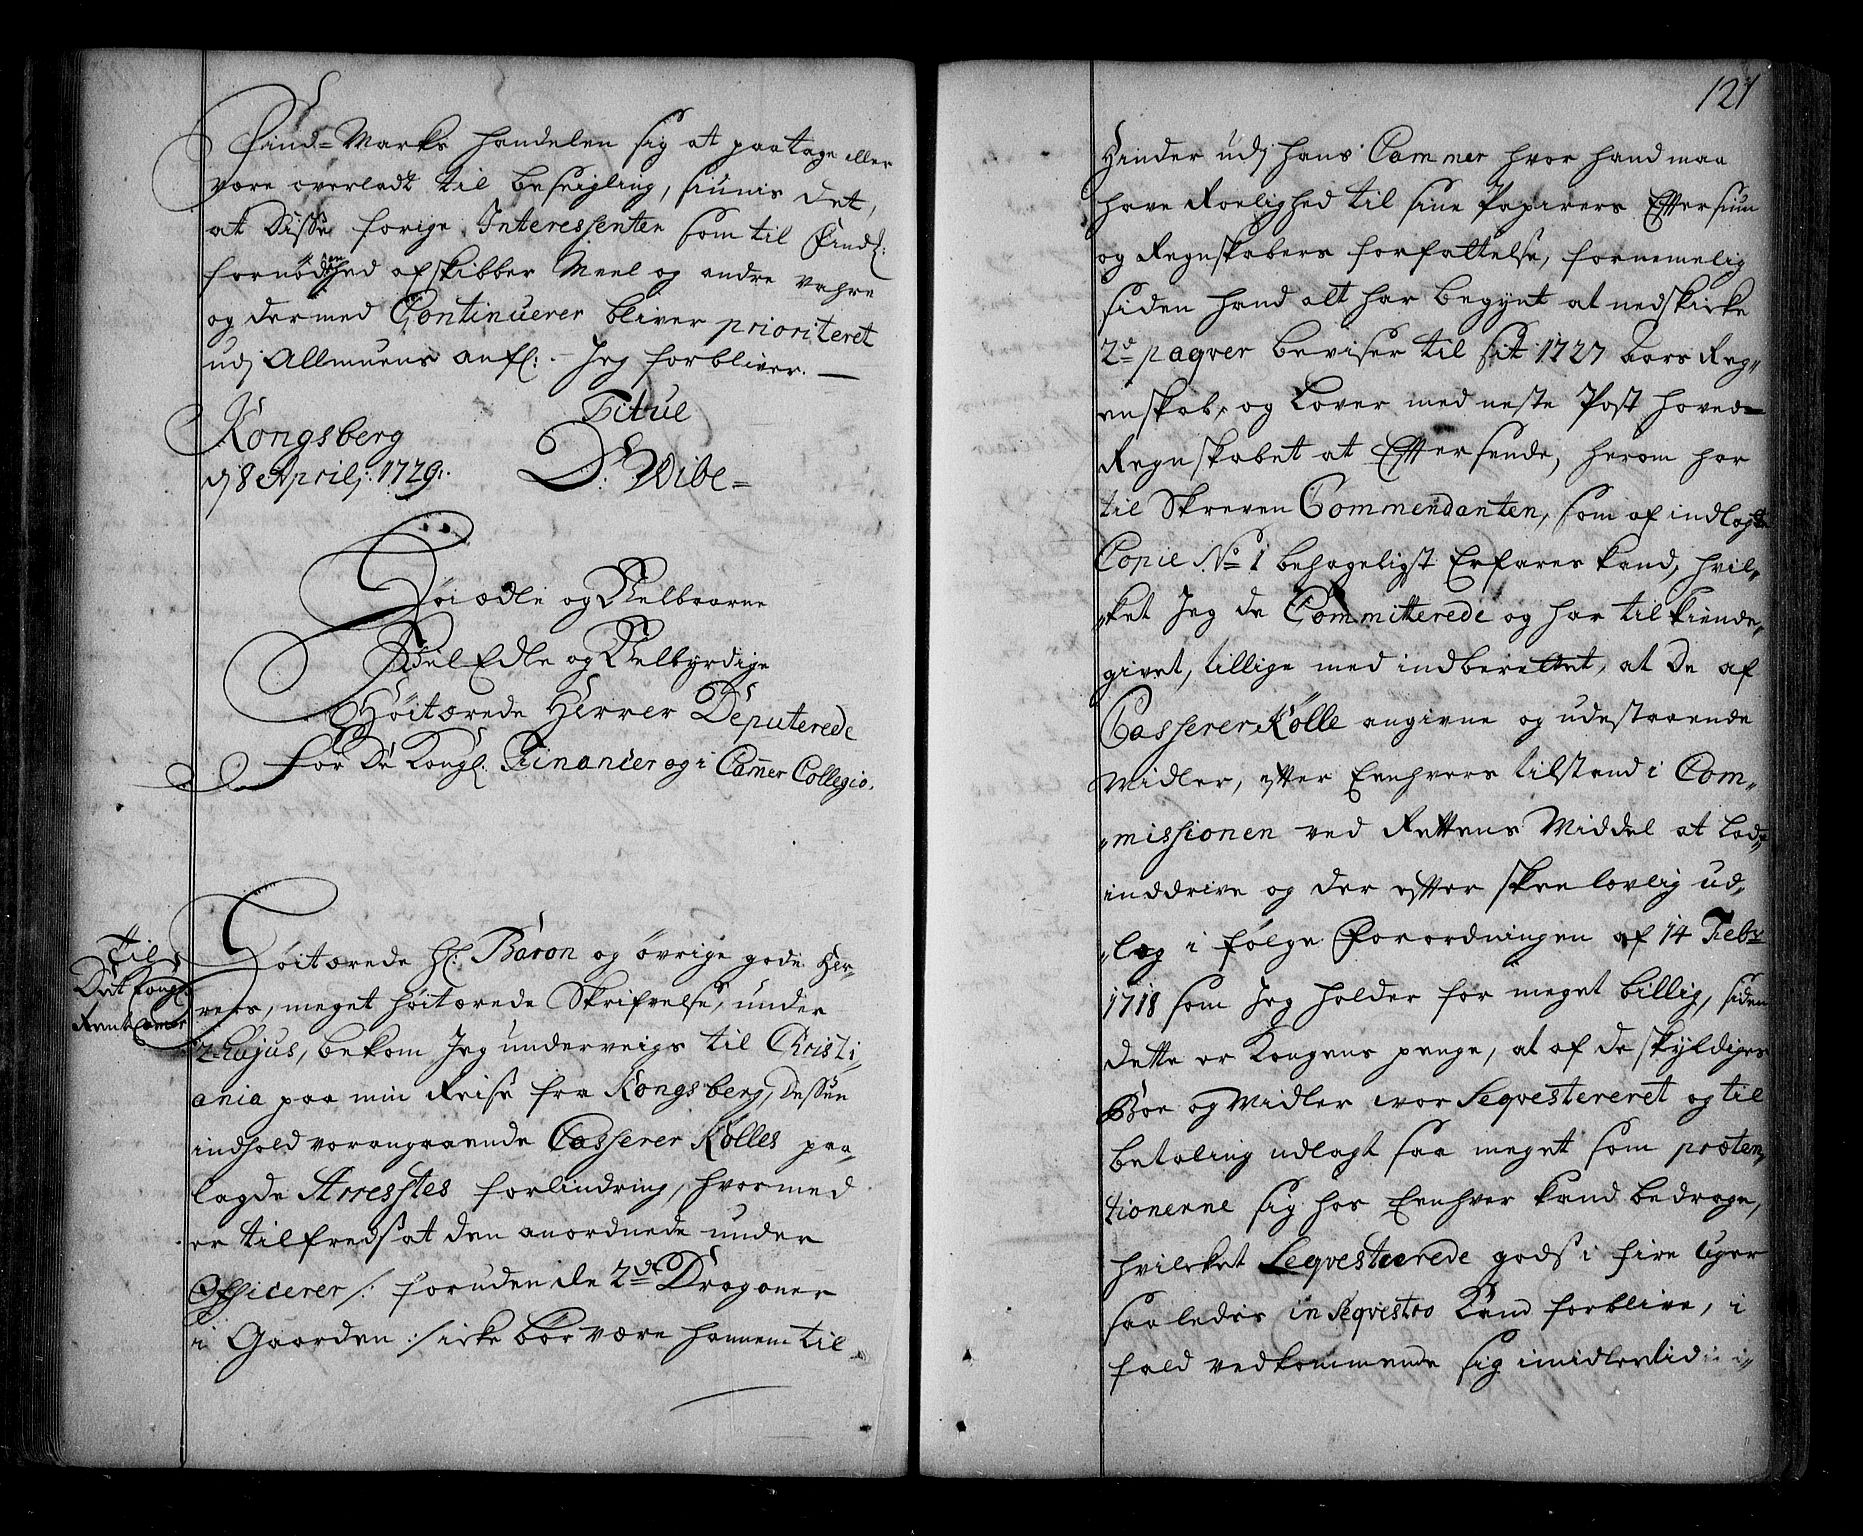 Find=Marks handelen sig at paatage eller
være overladt til beseigling, siunis det,
at disse forige Interessenter som til Findl:
fornødenhed afskibber Meel og andre vahre
og dermed Continuerer bliver prioriteret
udj Allmuens ansl: - Jeg forbliver. —
Titul
Kongsberg
d 8 Aprilj: 1729:. D: Wibe=
Høiædle og Velbaarne
Vel Edle og Velbyrdige
Høitærede Herrer Deputerede
for De Kongl: Financer og i Cammer Collegio.
Til
Det Kongl:
Rente Camer
Høitærede H: Baron og øvrige gode Her-
rers, meget høitærede Skrifvelse, under
2 hujus, bekom Jeg underveigs til Christi
ania paa min Reise fra Kongsberg, dessen
indhold vorangaaende Casserer Kølles paa-
lagde Arresstes forlindring, hvormed
er tilfreds at den anordnede under
Officerer /: foruden de 2de Dragoner
i Gaarden :/ icke bør være hannem til
121
Hinder udj hans Cammer hvor hand maa
have Roelighed til sine Papirers Eftersiun
og Regnskabers forfattelse, fornemelig
siden hand alt har begynt at nedskicke
2de paqver beviser til sit 1727 Aars Reg-
enskab, og Lover med neste Post hoved=
Regnskabet at Eftersende, herom har
til Skreven Commendanten, som af indlagte
Copie No 1 behageligst Erfares kand, hvil-
"ket Jeg de Committerede og har tilkiende-
givet, tillige med indberettet, at de af
Casserer Kølle angivne og udestaaende
Midler, efter Eenhvers tilstand i Com-
"missionen ved Rettens Middel at lade
inddrive og der efter skee lovlig ud-
"læg i følge Forordningen af 14 Febr:
1718 som Jeg holder for meget billig, siden
dette er Kongens penge, at af de skyldiges
Boe og Midler vor Seqvestereret og til
betaling udlagt saa meget som præten-
tionerne sig hos Eenhver kand bedrage,
hvilcket Seqvesterede gods i fire Uger
saaledes in Seqvestro kand forblive, i
fald vedkommende sig imidlertid i-